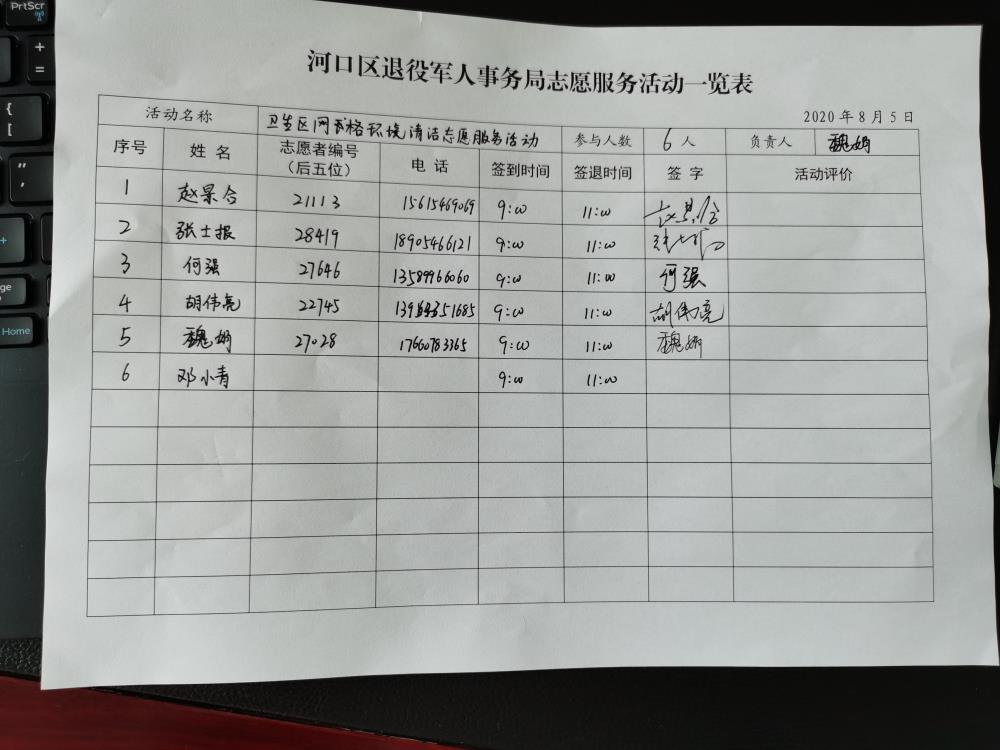 PrtScr
+
=
{
[
"
'
+
Home
河口区退役军人事务局志愿服务活动一览表
2020年8月5日
活动名称 卫生区网格环境清洁志愿服务活动 参与人数 6人 负责人 魏娟
序号 姓名 志愿者编号（后五位） 电话 签到时间 签退时间 签字 活动评价
1 赵景合 21113 15615469069 9:00 11:00 赵景合
2 张士报 28419 18905466121 9:00 11:00
3 何强 27646 13589966060 9:00 11:00 何强
4 胡伟亮 22745 9:00 11:00 胡伟亮
5 魏娟 27028 17660783365 9:00 11:00 魏娟
6 邓小青 9:00 11:00